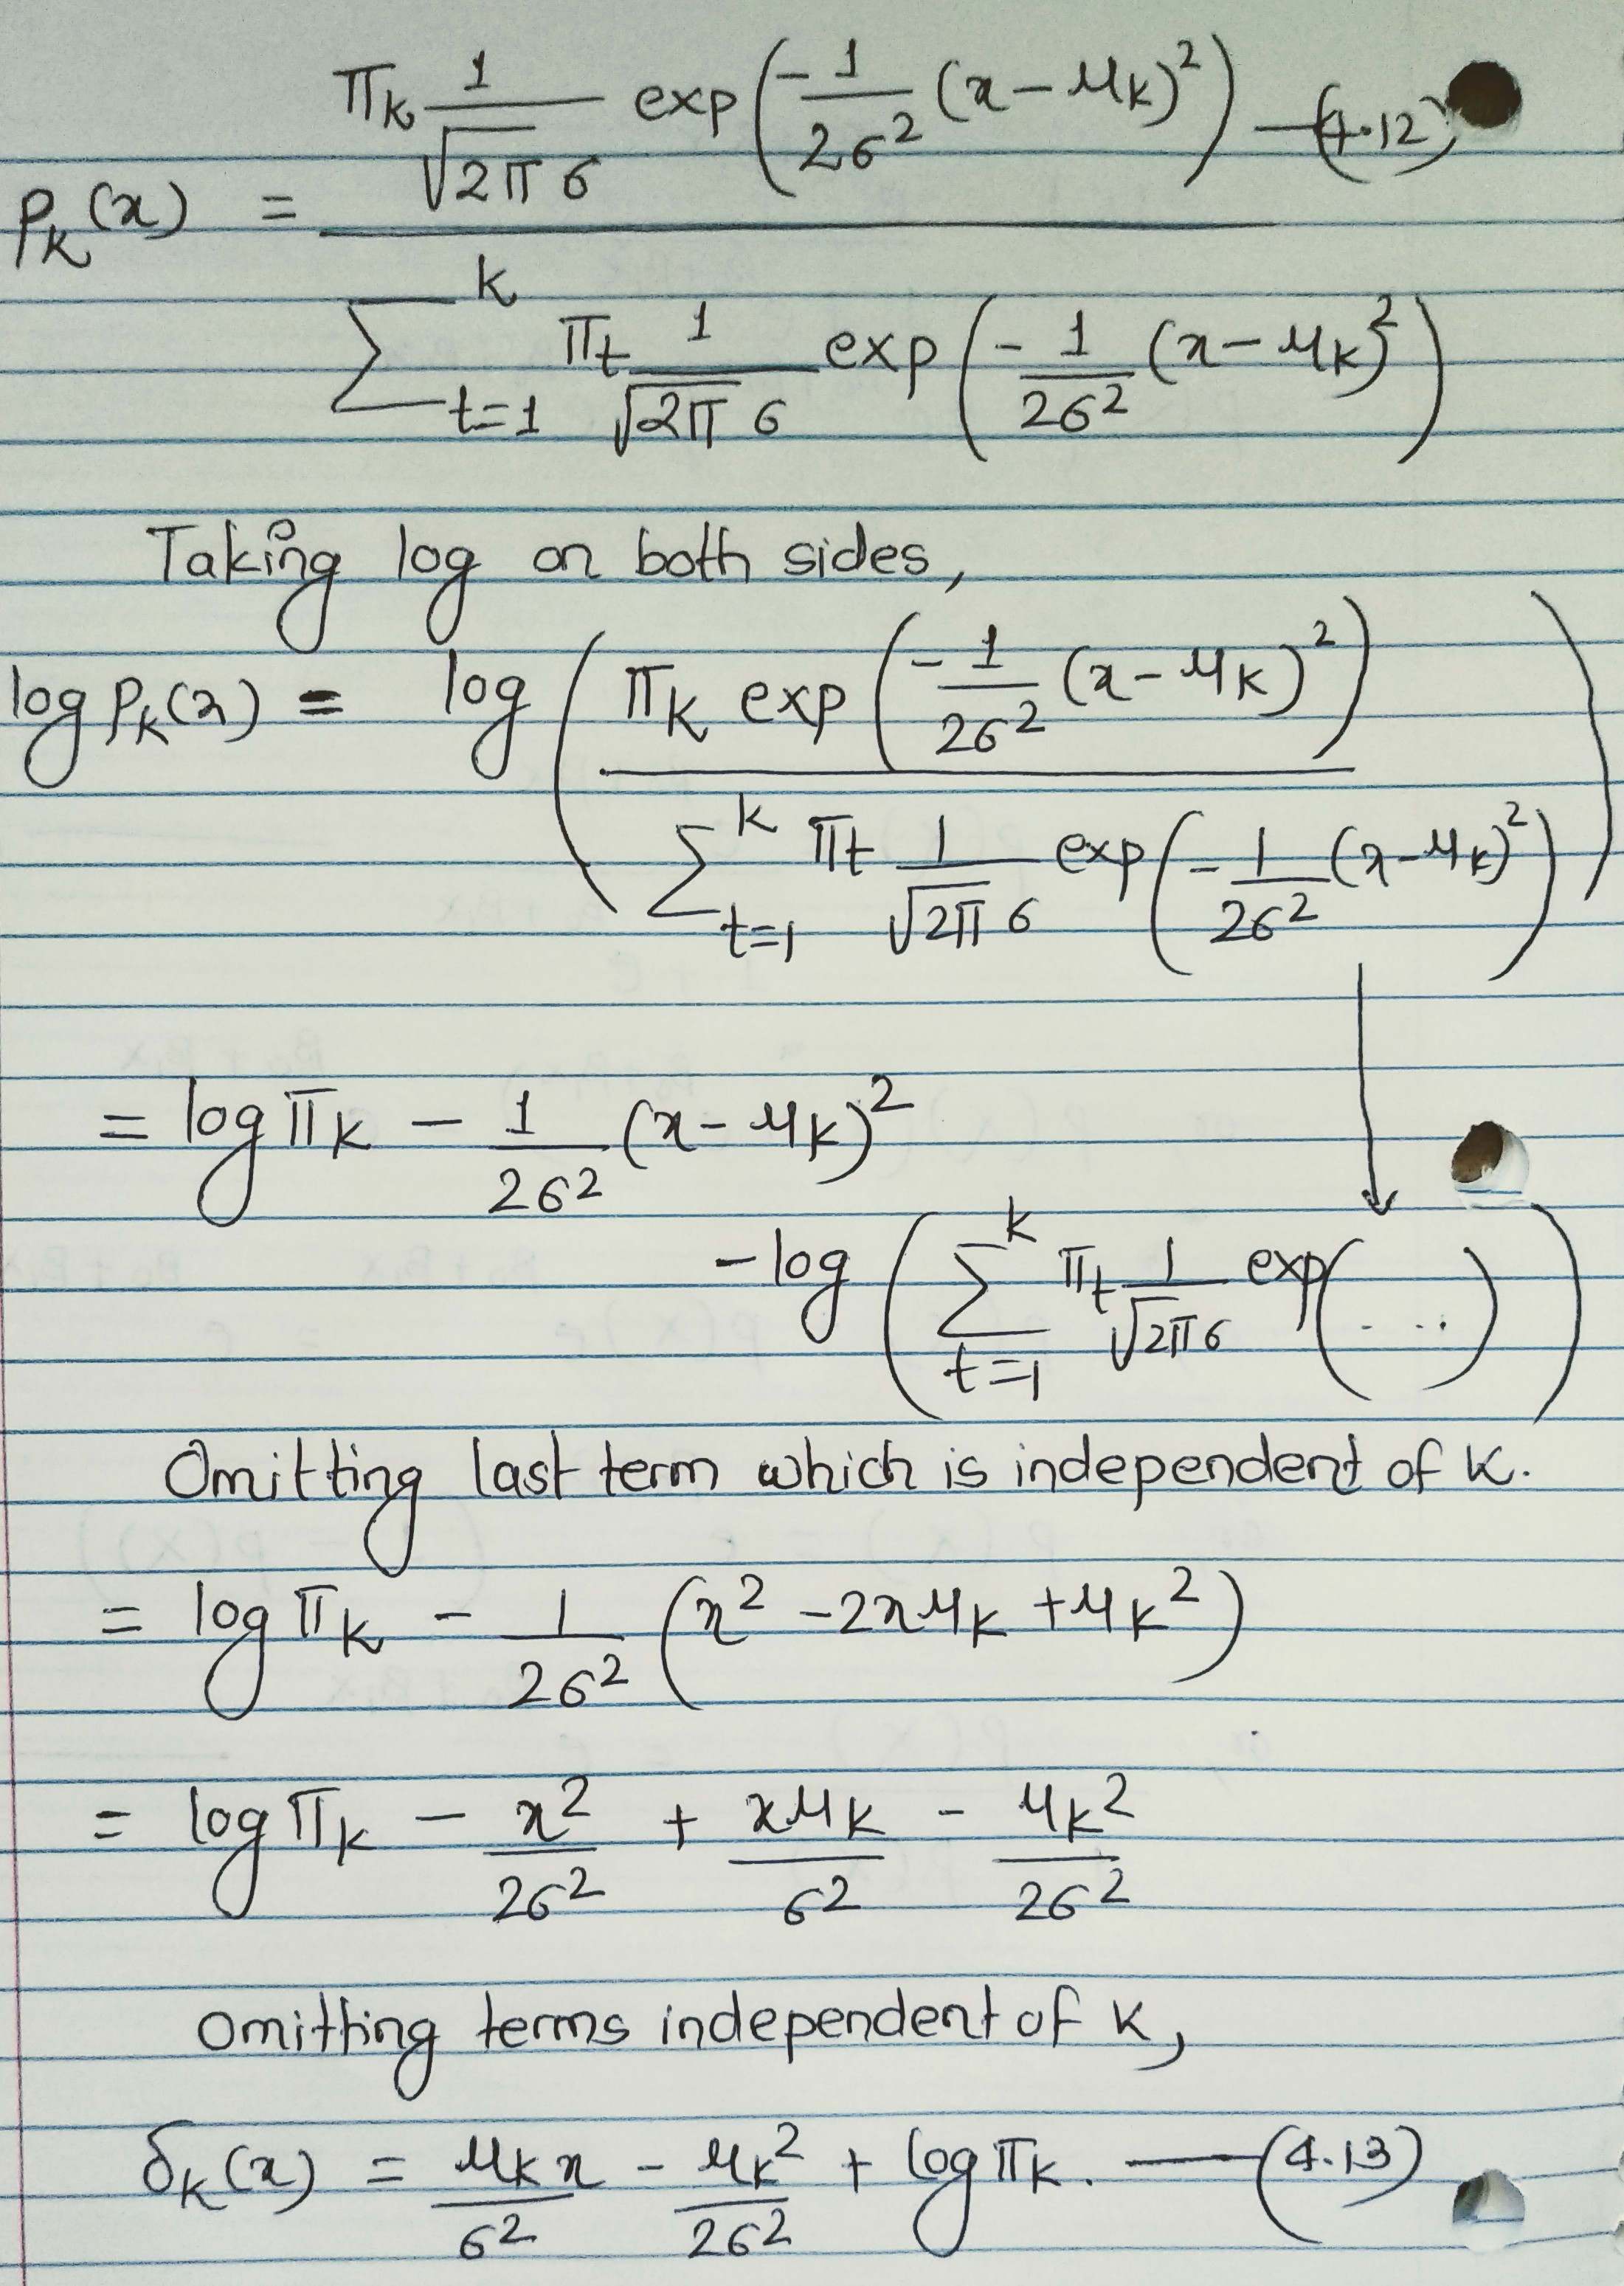 πk 1/(√2π σ) exp(-1/(2σ²) (x-μk)²) —(4.12)
pk(x) = ―――――――――――――
∑ᵏt=1 πt 1/(√2π σ) exp(-1/(2σ²) (x-μk)²)
Taking log on both sides,
log pk(x) = log ( πk exp(-1/(2σ²) (x-μk)²) / ∑ᵏt=1 πt 1/(√2π σ) exp(-1/(2σ²) (x-μk)²) )
= log πk - 1/(2σ²) (x-μk)²
-log ( ∑ᵏt=1 πt 1/(√2π σ) exp(...) )
Omitting last term which is independent of K.
= log πk - 1/(2σ²) (x² - 2xμk + μk²)
= log πk - x²/(2σ²) + xμk/σ² - μk²/(2σ²)
omitting terms independent of K,
δk(x) = μk x/σ² - μk²/(2σ²) + log πk. —(4.13)